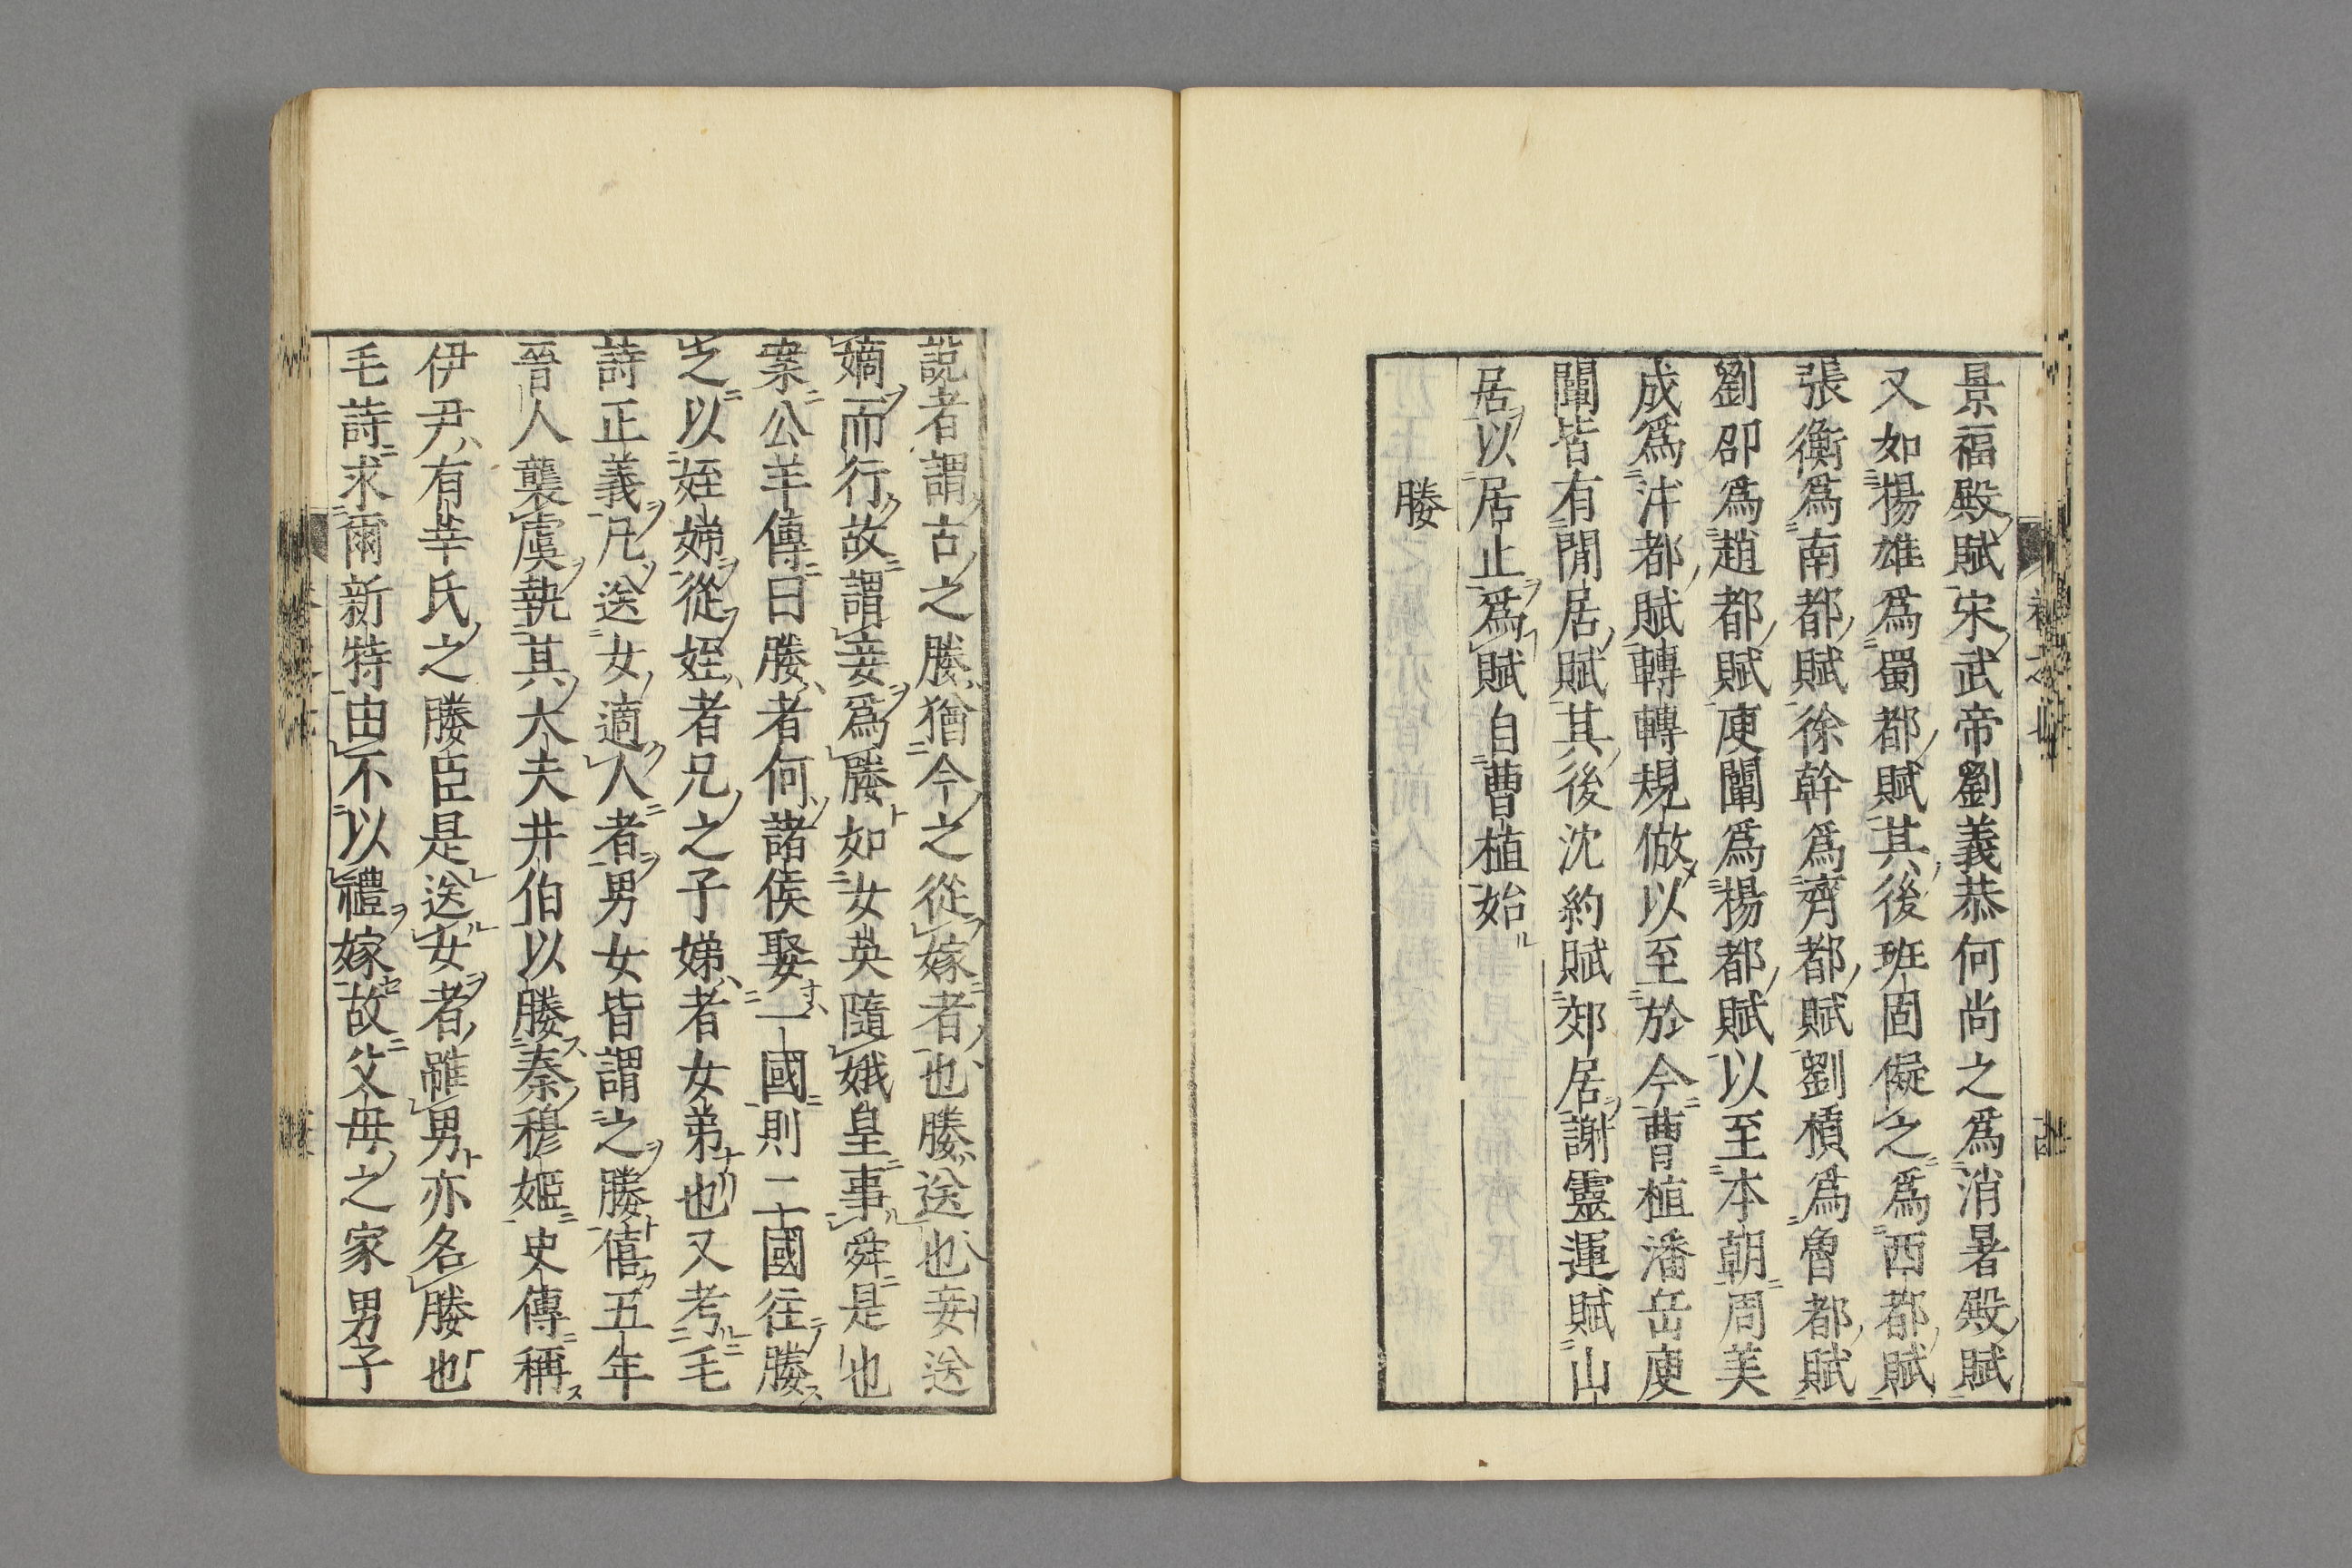 景福殿賦宋武帝劉義恭何尚之爲消暑殿賦
又如揚雄爲蜀都賦其後班固儗之爲西都賦
張衡爲南都賦徐幹爲齊都賦劉楨爲魯都賦
劉卲爲趙都賦庾闡爲揚都賦以至本朝周美
成爲汴都賦轉轉規倣以至於今曹植潘岳庾
闡皆有閒居賦其後沈約賦郊居謝靈運賦山
居以居止爲賦自曹植始
媵
說者謂古之媵猶今之從嫁者也媵送也妾送
嫡而行故謂妾爲媵如女英隨娥皇事舜是也
案公羊傳曰媵者何諸侯娶一國則二國往媵
之以姪娣從姪者兄之子娣者女弟也又考毛
詩正義凡送女適人者男女皆謂之媵僖五年
晉人襲虞執其大夫井伯以媵秦穆姬史傳稱
伊尹有莘氏之媵臣是送女者雖男亦名媵也
毛詩求爾新特由不以禮嫁故父毋之家男子